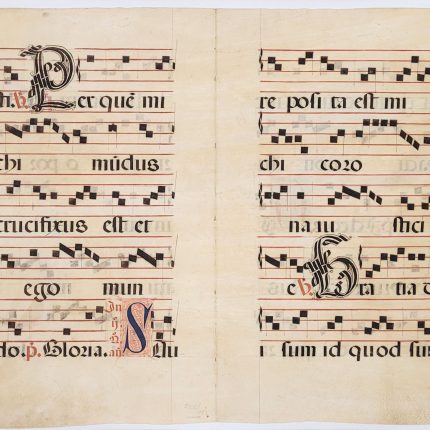 ti. ℟. Per quē mi
chi mūdus
crucifixus est et
ego mun
do. ℣. Gloria. S
re posi ta est mi
chi coro
na iu stici
e ℟. Gra tia d
i sum id quod sum